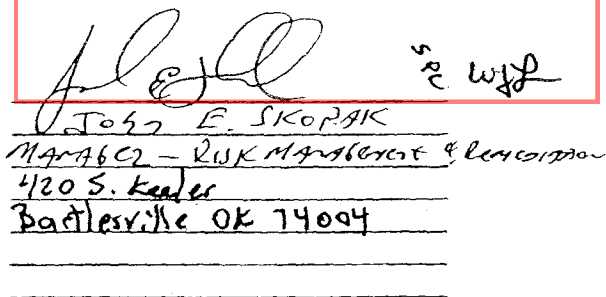 SRC WJL
John E. SKOPAK
MANAGER - RISK MANAGEMENT & REMEDIATION
420 S. Keeler
Bartlesville OK 74004